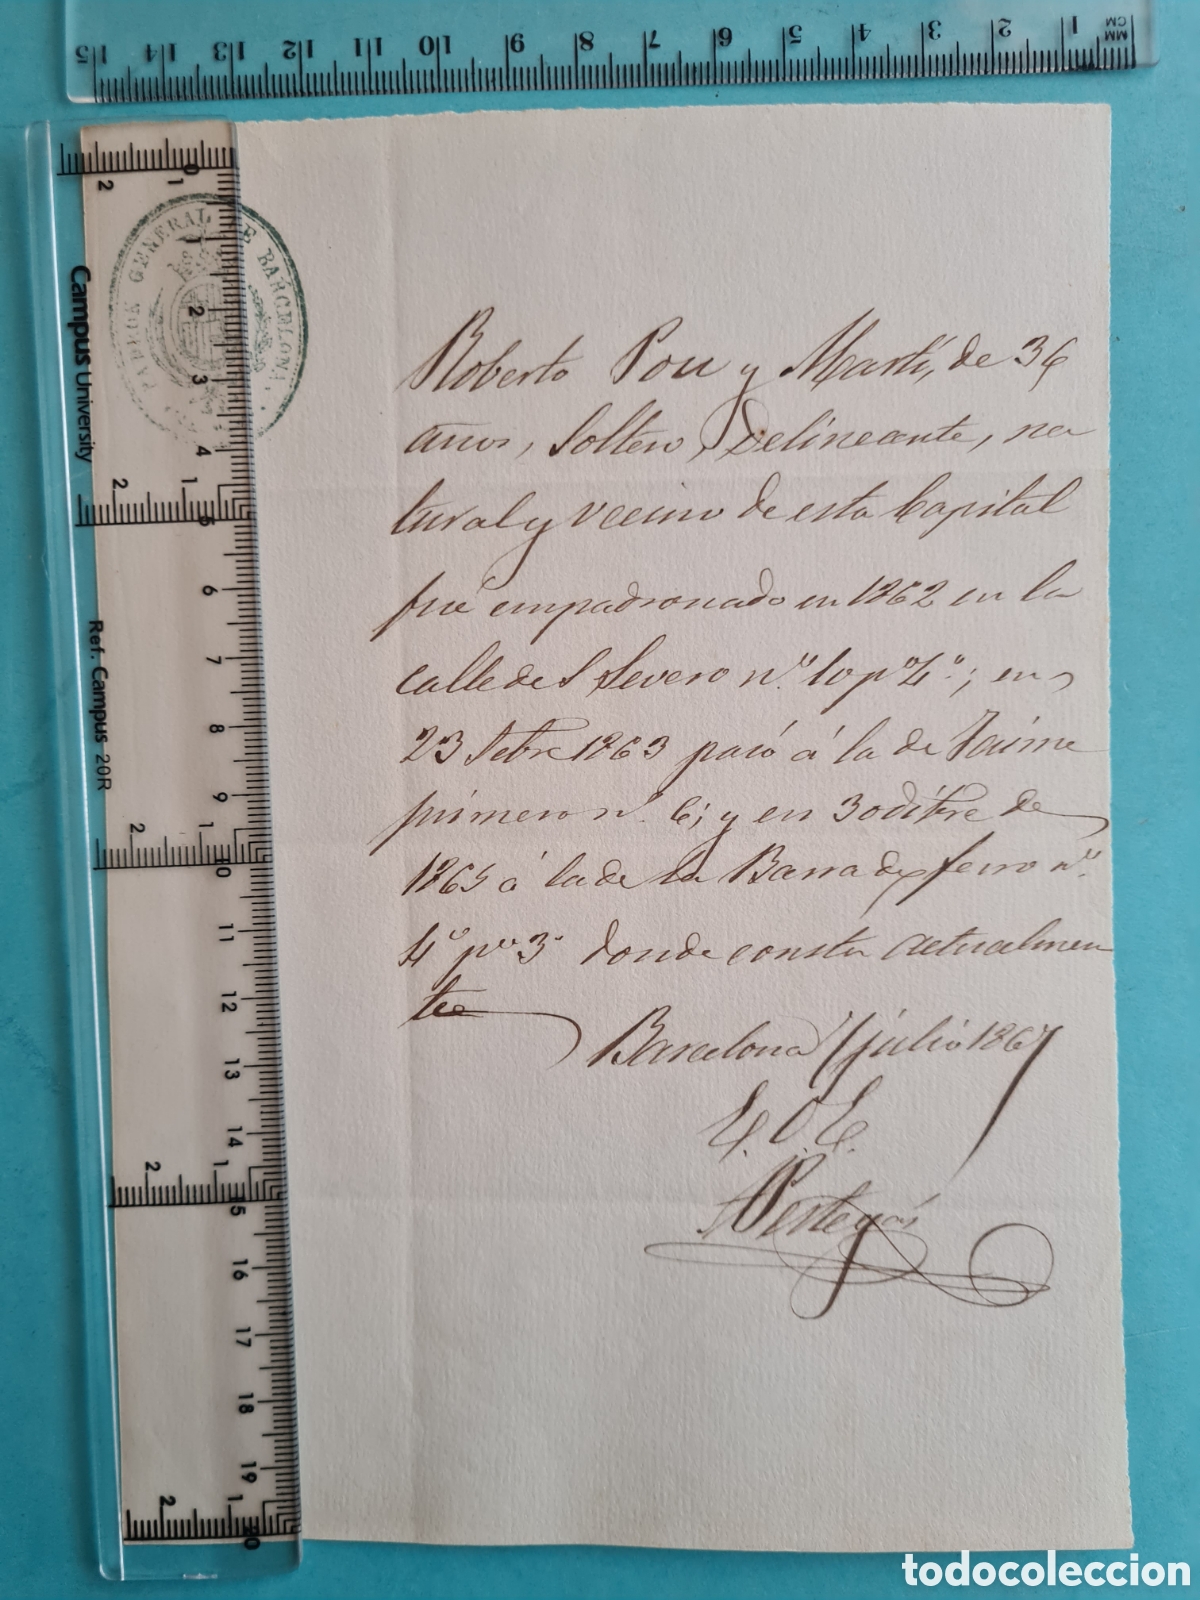 MM
CM
1 2 3 4 5 6 7 8 9 10 11 12 13 14 15
PADRON GENERAL DE BARCELONA
Campus University
Ref. Campus 20R
0 1 2 3 4 5 6 7 8 9 10 11 12 13 14 15 16 17 18 19 20
2 1
2 1
2 1
2 1
2 1
Roberto Pou y Martí, de 36
años, Soltero, Delineante, na
tural y vecino de esta Capital
fué empadronado en 1862 en la
calle de S Severo nº 10 pº 4º; en
23 Setbre 1863 pasó á la de Jaime
primero nº 6; y en 30 ditbre de
1865 á la de la Barra de ferro nº
4º pº 3º donde consta actualmen
te
Barcelona 1 julio 1867
E. O. E.
Pertegás
todocoleccion